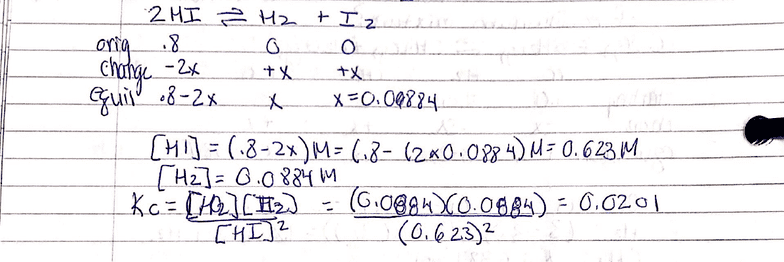 2HI ⇌ H2 + I2
orig .8 0 0
change -2x +x +x
equil .8-2x x x=0.0884
[HI] = (.8-2x)M = (.8-(2x0.0884)M = 0.623M
[H2] = 0.0884M
Kc = [H2][I2] / [HI]² = (0.0884)(0.0884) / (0.623)² = 0.0201